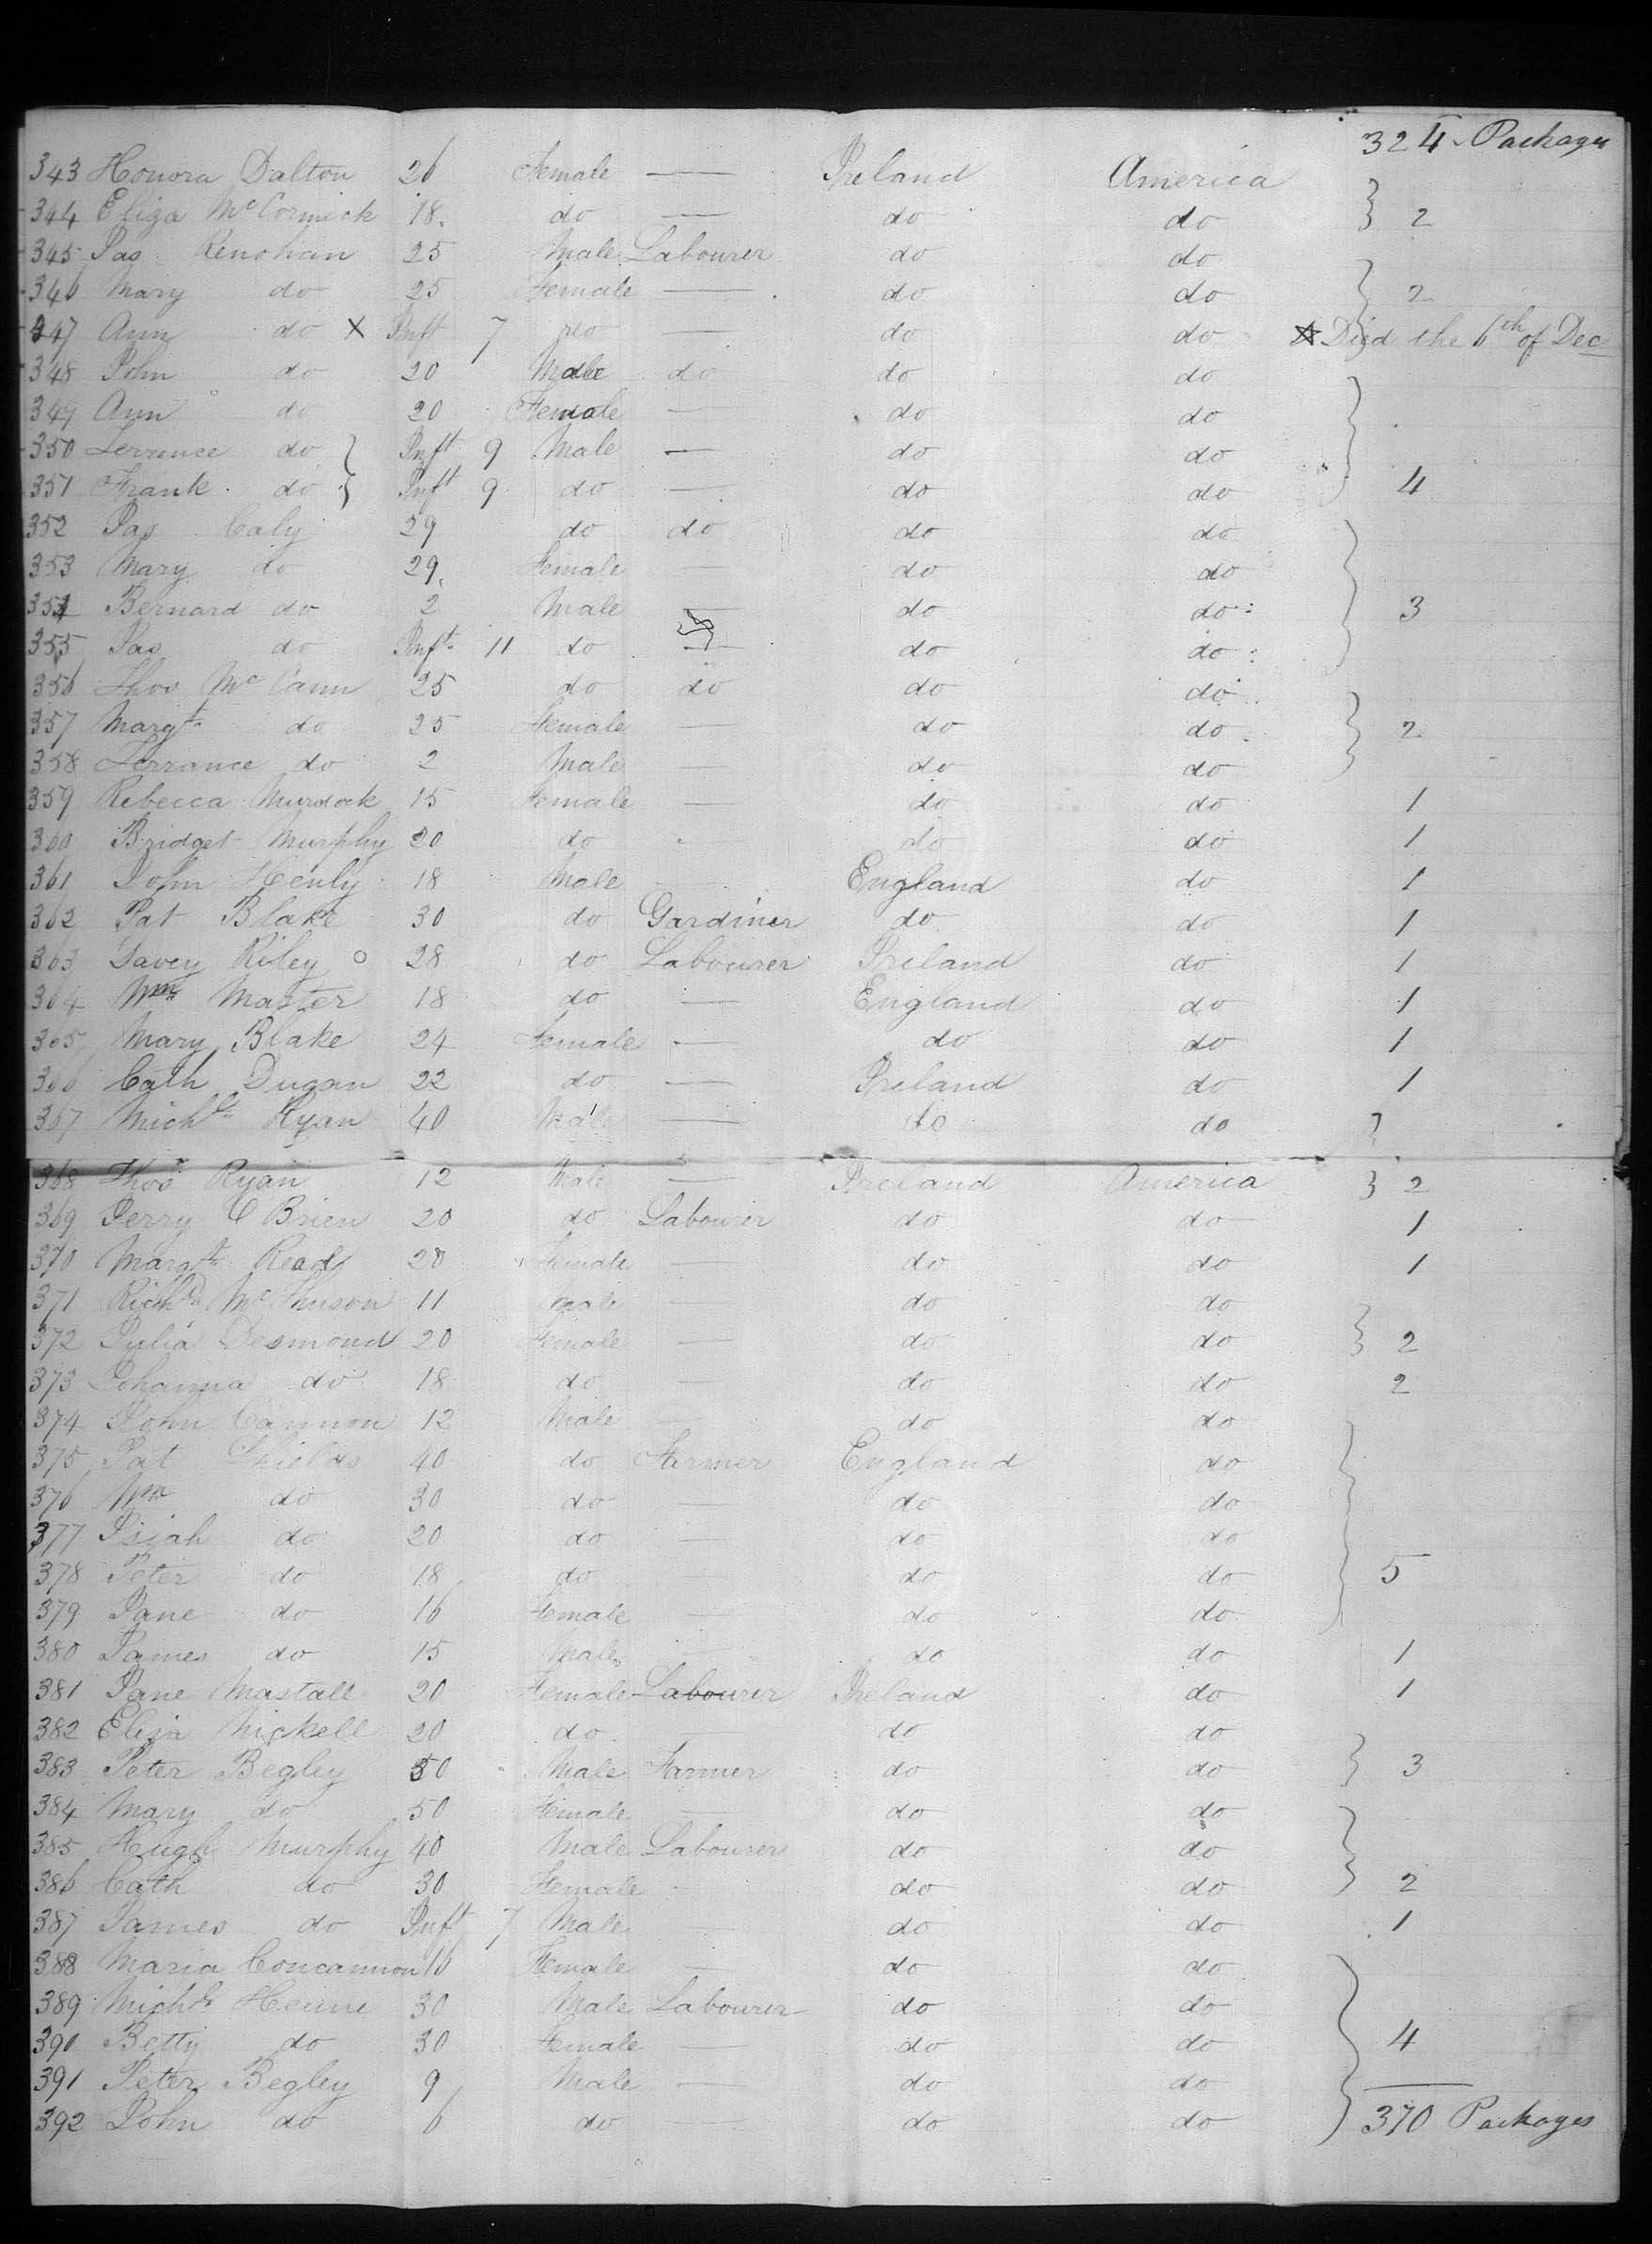 324 Packages
343 Honora Dalton 26 Female — Ireland America
344 Eliza McCormick 18 do — do do } 2
345 Jas Renohan 25 Male Labourer do do
346 Mary do 25 Female — do do } 2
347 Ann do X Inft 7 do — do do Died the 6th of Dec
348 John do 20 Male do do do
349 Ann do 20 Female — do do
350 Terrence do } Inft 9 Male — do do
351 Frank do } Inft 9 do — do do } 4
352 Jas Caly 29 do do do do
353 Mary do 29 Female — do do
354 Bernard do 2 Male — do do } 3
355 Jas do Inft 11 do — do do
356 Thos McCann 25 do do do do
357 Margt do 25 Female — do do } 2
358 Terrance do 2 Male — do do
359 Rebecca Murdock 15 Female — do do 1
360 Bridget Murphy 20 do - do do 1
361 John Henly 18 Male England do 1
362 Pat Blake 30 do Gardiner do do 1
363 Davey Riley 28 do Labourer Ireland do 1
364 Wm Master 18 do — England do 1
365 Mary Blake 24 Female — do do 1
366 Cath Dugan 22 do — Ireland do 1
367 Michl Ryan 40 Male — do do }
368 Thos Ryan 12 Male — Ireland America } 2
369 Jerry O Brien 20 do Labourer do do 1
370 Margt Read 20 Female — do do 1
371 Richd 11 Male — do do
372 Julia Desmond 20 Female — do do } 2
373 Johanna do 18 do — do do 2
374 John Cannon 12 Male — do do
375 Pat Shields 40 do Farmer England do
376 Wm do 30 do — do do
377 Isiah do 20 do — do do
378 Peter do 18 do do do } 5
379 Jane do 16 Female — do do
380 James do 15 Male do do 1
381 Jane Mastall 20 Female Labourer Ireland do 1
382 Eliza Nickell 20 do — do do
383 Peter Begley 50 Male Farmer do do } 3
384 Mary do 50 Female — do do
385 Hugh Murphy 40 Male Labourer do do
386 Cath do 30 Female - do do } 2
387 James do Inft 7 Male — do do 1
388 Maria Concannon 16 Female — do do
389 Michl Heune 30 Male Labourer do do
390 Betty do 30 Female — do do } 4
391 Peter Begley 9 Male — do do
392 John do 6 do do do 370 Packages